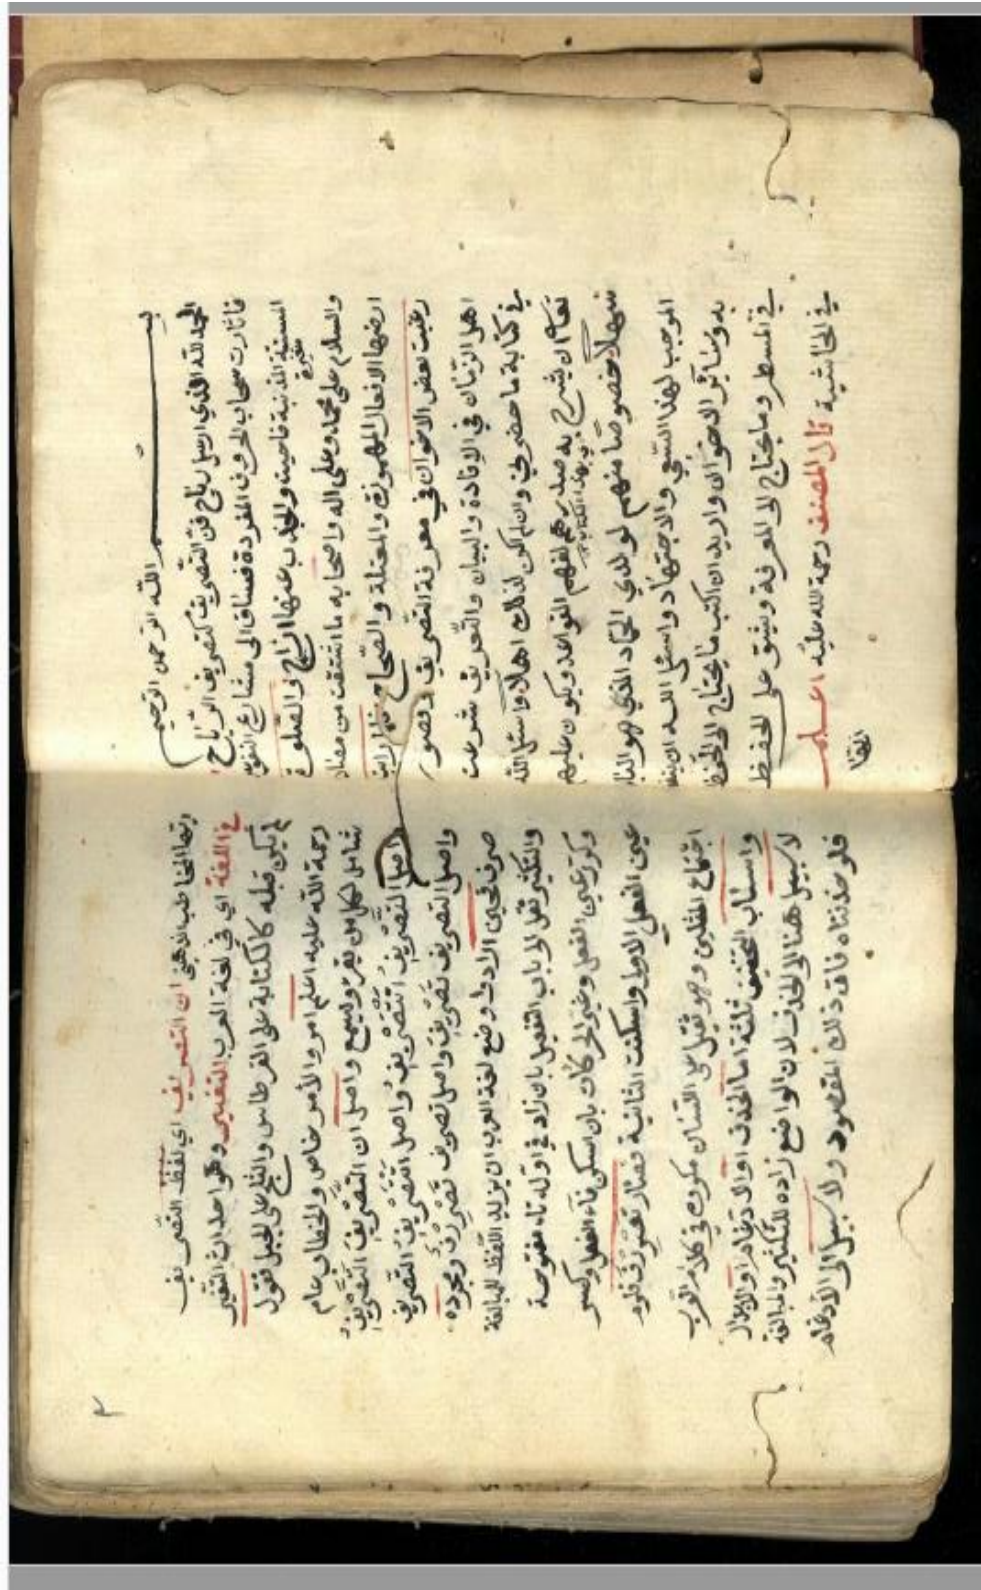 بسم الله الرحمن الرحيم
الحمد لله الذي ارسل رياح فن التصريف كتصريف الرياح
فاثارت سحاب الحروف المفردة فساق الى مشارع
فاحييت والجذب عنها ازاح والصلوة
والسلام على محمد وعلى اله واصحابه ما اشتقت من مصادر
ارضها الافعال المهموزة والمعتلة والصحاح
رغبت بعض الاخوان في معرفة التصريف وقصور
اهل الزمان في الافادة والبيان والتعريف شرعت
في كتابة ما حضرني وان لم اكن لذلك اهلا واسئل الله
تعالى ان يشرح به صدرهم لفهم القواعد ويكون عليهم
بهذا الكتاب
سهلا خصوصا منهم لولدي الذي هو
الموجب لهذا السعي والاجتهاد واسئل الله ان
به وسائر الاخوان واريد ان اكتب ما يحتاج الى الحفظ
في المسطر وما يحتاج الى المعرفة ويشق على الحفظ
في الحاشية قال المصنف رحمة الله عليه اعلم
ايها المخاطب الذهني ان التصريف اي لفظ التصريف
في اللغة اي في لغة العرب التغيير وهو احداث التغير
لم يكن قبله كالكتابة على القرطاس والثلج على الجبل فقول
رحمة الله عليه اعلم امر والامر خاص والخطاب عام
شامل لكل من يقرء ويسمع واصل ان التصريف التصريف
اصل التصريف التصريف واصل التصريف التصريف
واصل التصريف تصريف واصل تصريف تصررف ومجرده
صرف فحين اراد واضع لغة العرب ان يزيد اللفظ للمبالغة
والتكثير نقل الى باب التفعيل بان زاد في اوله تاء مفتوحة
وكرر عين الفعل وغير الحركات بان اسكن فاء الفعل وكسر
عين الفعل الاولى واسكنت الثانية فصار تصررف فلزم
اجتماع المثلين وهو ثقيل على اللسان مكروه في كلام العرب
واسباب التخفيف ثلثة اما الحذف او الادغام او الابدال
لا سبيل هنا الى الحذف لان الواضع زاده للتكثير والمبالغة
فلو حذفناه فات ذلك المقصود ولا سبيل الى الادغام